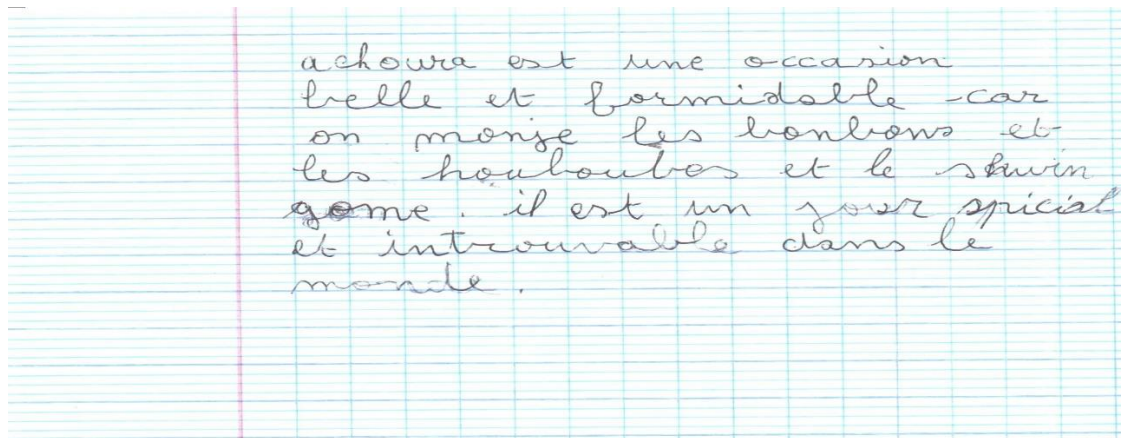 achoura est une occasion
belle et formidable -car
on monje les bonbons et
les houboubes et le shwin
gome. il est un jour spicial
et introuvable dans le
monde.